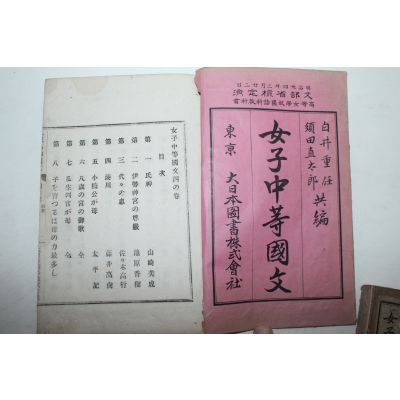 明治卅四年三月廿二日
文部省檢定濟
高等女學校國語科教科書
白井重任
須田直太郎
共編
女子中等國文
東京 大日本圖書株式會社
女子中等國文四の卷
目次
第一 氏神 山崎美成
第二 伊勢神宮の尊嚴
第三 代々の惠 佐々木高行
第四 湊川
第五 小楠公が母 太平記
第六 八歲の宮の御歌 仝
第七 瓜生判官が母 仝
第八 子を育つるは母の力最多し
女子